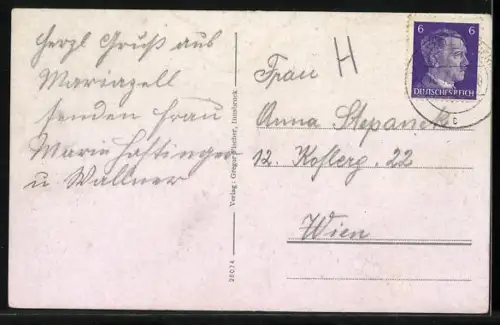 Herzl Gruß aus
Mariazell
senden Frau
Marie Haftinger
u. Wallner
Verlag: Gregor Fischer, Innsbruck
28074
H
Frau
Anna Stepanek
12. Koflerg. 22
Wien
6 6
DEUTSCHES REICH
c